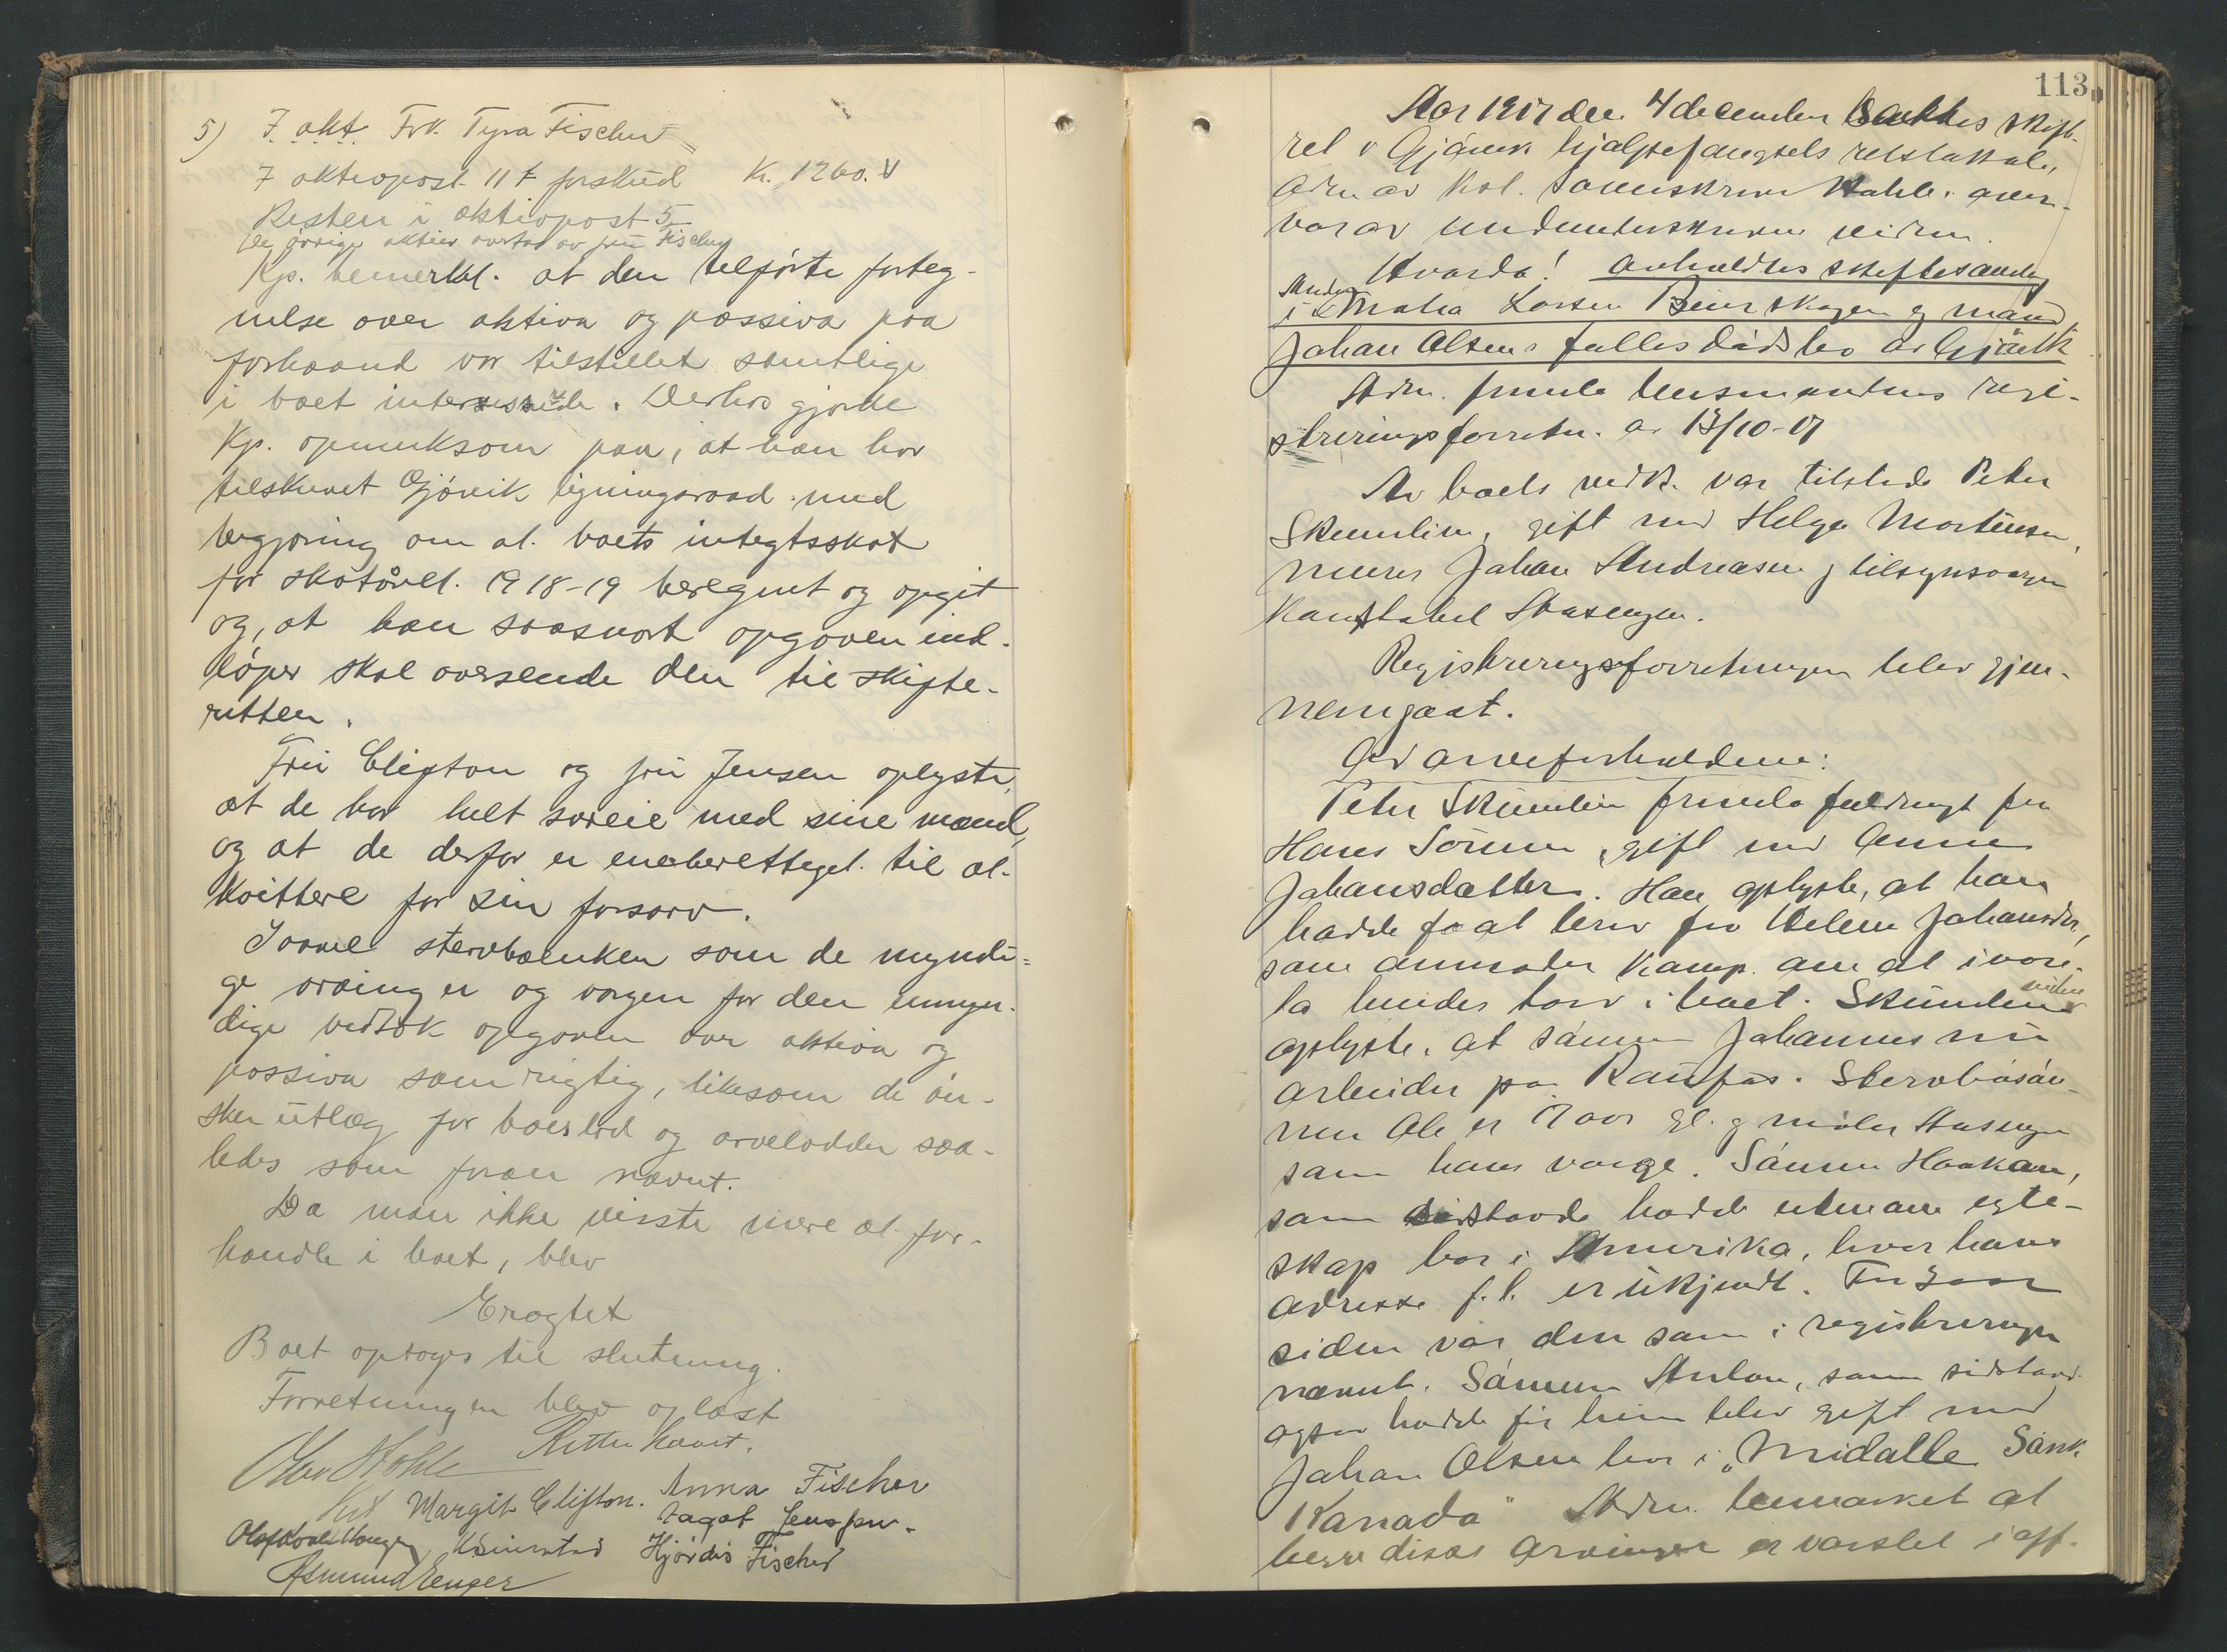 5) 7. akt. Frk. Tyra Fischer
7 aktivapost 11 f forskud Kr. 1260.
Resten i aktivapost 5
De øvrige aktier overtas av fru Fischer
Kp. bemerket at den tilførteforteg-
nelse over aktiva og passiva paa
forhaand var tilstillet samtlige
i boet interesserte. Derhos gjorde
Kp. opmerksom paa, at han har
tilskrevet Gjøvik ligningsraad med
begjæring om at boets indtægtsskat
for skatåret 1918-19 beregnet og opgit
og, at han saasnart opgaven ind-
løper skal oversende den til skifte-
retten.
Fru Clifton og fru Jensen oplyste,
at de har helt særeie med sine mænd,
og at de derfor er eneberettiget til at
kvittere for sin farsarv.
Saavel stervboenken som de myndi-
ge arvinger og vergen for den umyn-
dige vedtok opgaven over aktiva og
passiva som rigtig, likesom de øn-
sker utlæg for boeslod og arvelodder saa-
ledes som foran nævnt.
Da man ikke visste mere at for-
handle i boet, blev
Eragtet
Boet optages til slutning.
Forretningen blev oplæst
Retten hævet.
Margit Clifton. Anna Fischer
Dagot Jensen.
Hjørdis Fischer
Asmund Enger
113
Aar 1917 den 4 december sattes skift-
ret i Gjøvik hjælpefængsels retslokale,
Adm av kst. sorenskriver Hohle. over-
varar av undunderskrevne vidner.
Hvorda! avholdtes skiftesamling
i Maria Larsen Reierskogen og mand
Johan Olsens fælles dødsbo av Gjøvik
Adm. fremla lensmandens regi-
streringsforretn. av 13/10-17
Av boets vedk. var tilstede Peter
Skumlien, gift med Helga Mortensen,
murer Johan Andreasen og tilsynsverge
Konstabel Stusengen.
Registreringsforretningen blev gjen-
nemgaat.
Ad arveforholdene:
Peter Skumlien fremla fuldmagt fra
Hans Sørum, gift med Anne
Johansdatter. Han oplyste, at han
hadde faat brev fra Helene Johansdtr,
som anmoder ham om at ivare-
ta hendes tarv i boet. Skumlien videre
oplyste, at sønnen Johannes nu
arbeider paa Raufos. Stervbosøn-
nen Ole er 17 aar gl. og møter Stusengen
som hans verge. Sønnen Haakon,
som sidstavd. hadde utenom egte-
skap bor i Amerika, hvor hans
adresse f.t. er ukjendt. For 2 aar
siden var den som i registreringen
nævnt. Sønnen Anton, som sidstavd.
ogsaa hadde før hun blev gift med
Johan Olsen bor i „Midalle Sask.
Kanada" Adm. bemærket at
begge disse arvinger er varslet i off.